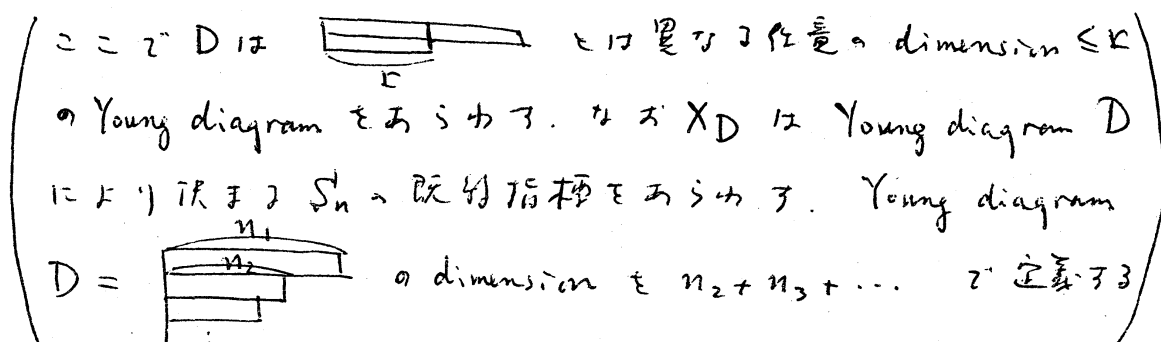 ここで D は とは異なる任意の dimension ≤ r
r
の Young diagram をあらわす. なお χ_D は Young diagram D
により決まる S_n の既約指標をあらわす. Young diagram
n_1
n_2
D = の dimension を n_2 + n_3 + ⋯ で定義する